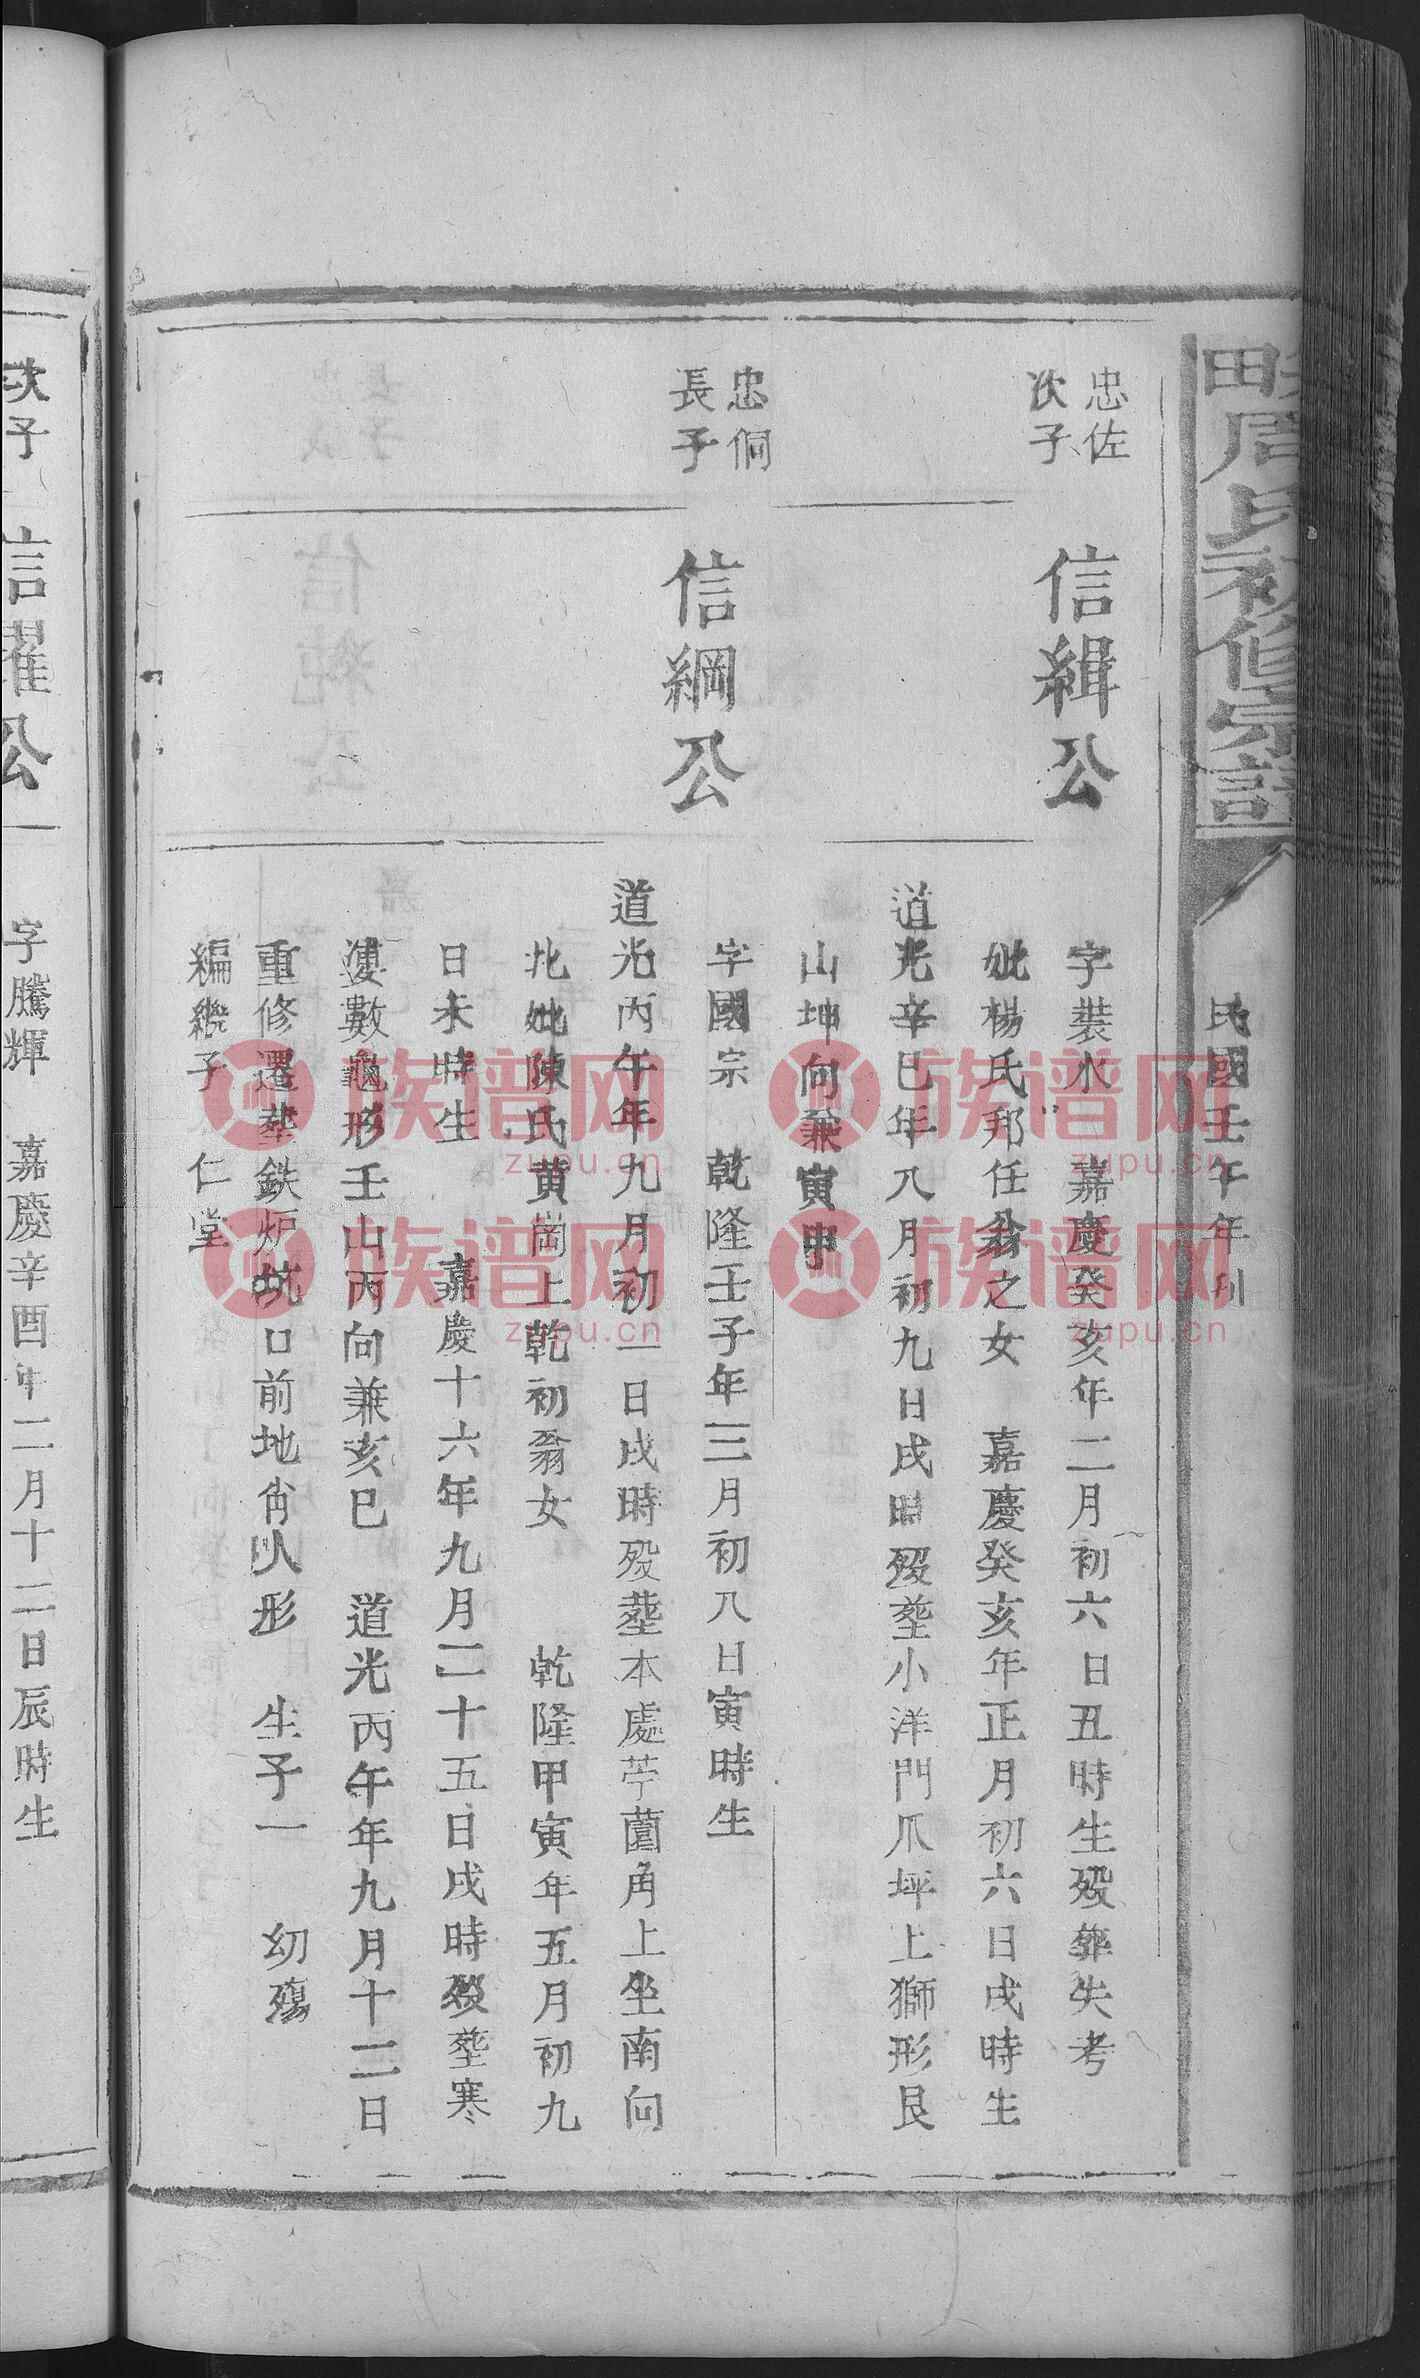 田周氏初修宗譜
民國壬午年刊
忠佐
次子
信緝公
字裝水 嘉慶癸亥年二月初六日丑時生歿葬失考
妣楊氏邦任翁之女 嘉慶癸亥年正月初六日戌時生
道光辛巳年八月初九日戌時歿塟小洋門爪坪上獅形艮
山坤向兼寅申
忠侗
長子
信綱公
字國宗 乾隆壬子年三月初八日寅時生
道光丙午年九月初一日戌時歿塟本處苧薗角上坐南向
北妣陳氏黄崗上乾初翁女 乾隆甲寅年五月初九
日未時生 嘉慶十六年九月二十五日戌時歿塟寒
婆數龜形壬山丙向兼亥巳 道光丙午年九月十二日
重修遷塟鉄炉坑口前地肖人形 生子一 幼殤
編繼子 仁堂
次子
信耀公
字騰輝 嘉慶辛酉年二月十二日辰時生
族谱网
zupu.cn
族谱网
zupu.cn
族谱网
zupu.cn
族谱网
zupu.cn